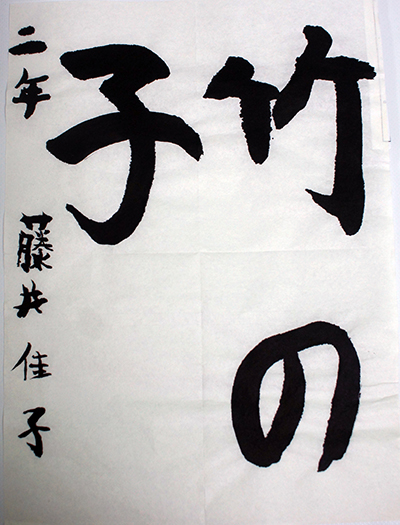 竹の
子
二年 藤井佳子